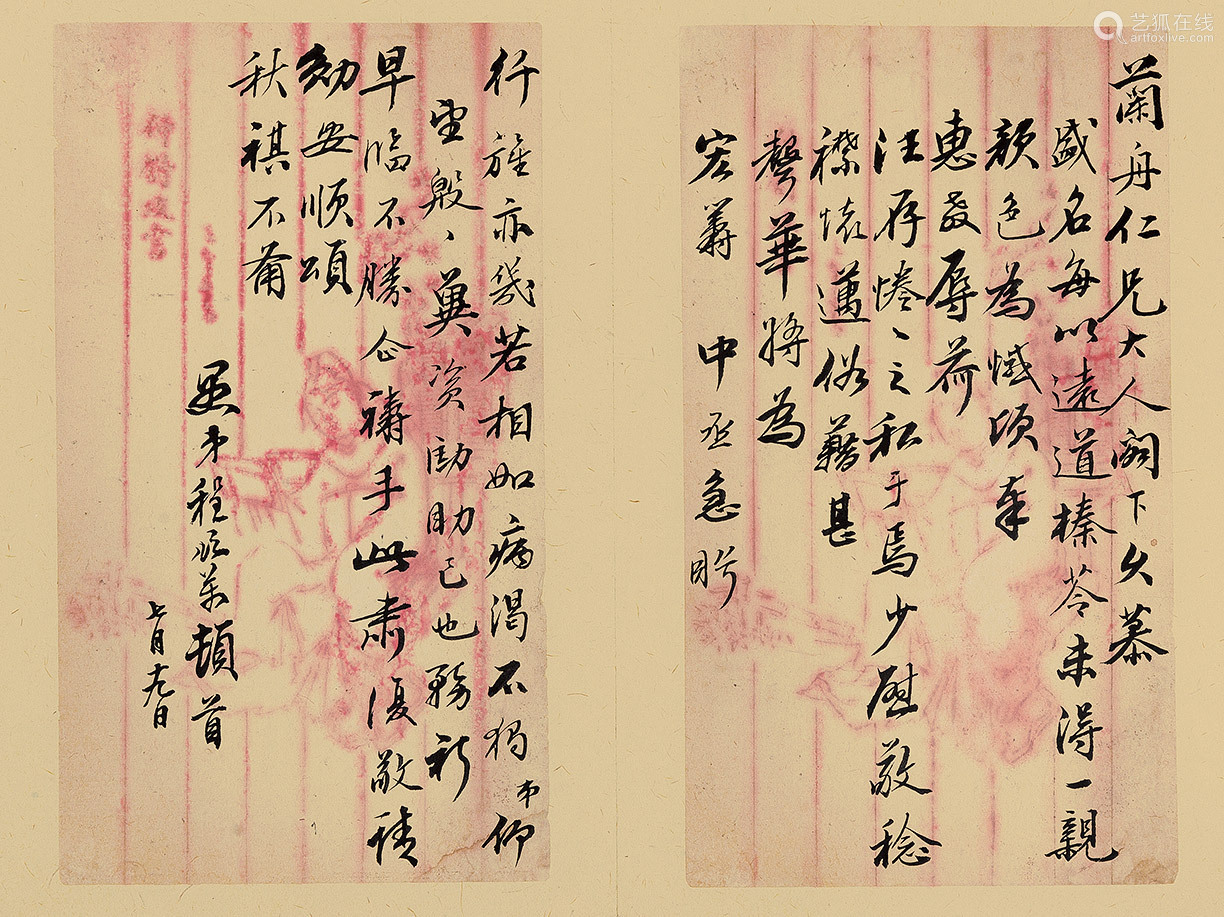 蘭舟仁兄大人閣下久慕
盛名每以遠道榛苓未得一親
顏色為憾頃奉
惠函辱荷
注存惓〻之私于焉少慰敬稔
襟懷邁俗藉甚
聲華將為
宏
中丞急
行旌亦幾若相如病渴不獨弟仰
望殷〻冀資勖助已也務祈
早臨不勝企禱手此肅復敬請
勛安順頌
秋祺不莆
愚弟程 頓首
七月十九日
艺狐在线
artfoxlive.com